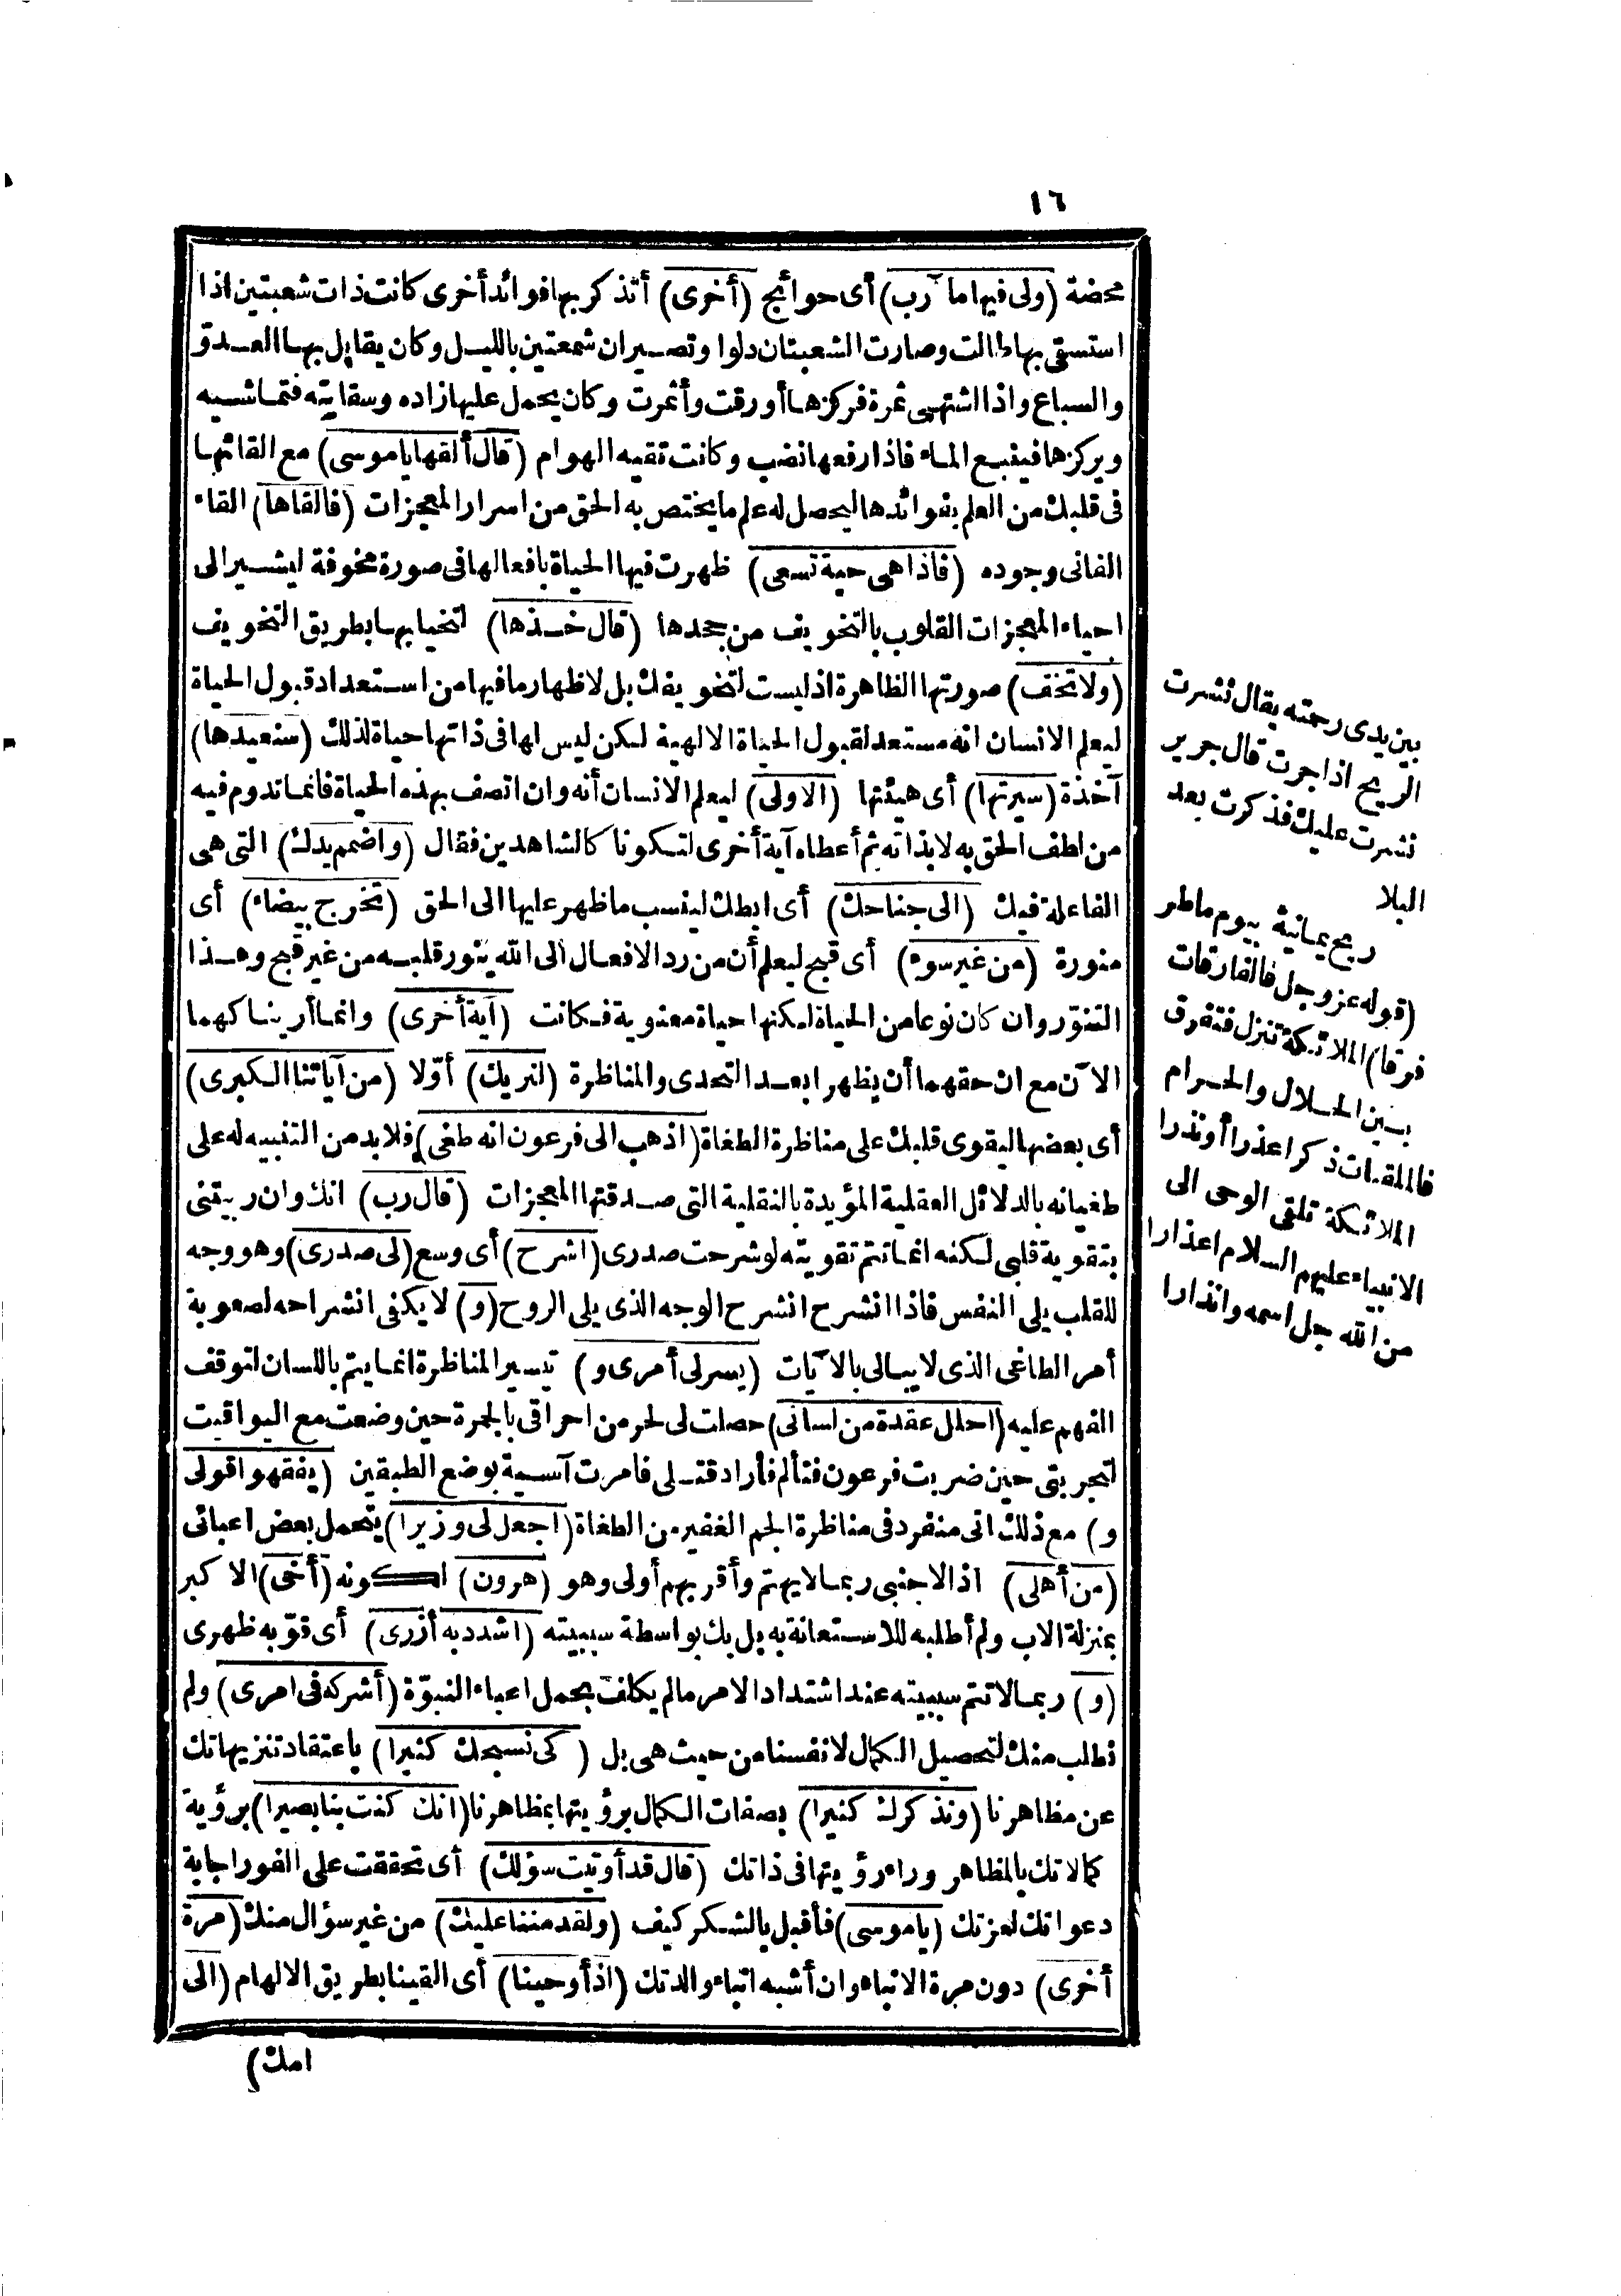 ١٦
محضة (ولى فيها مآرب) أى حوائج (أخرى) أتذكر بها فوائد أخرى كانت ذات شعبتين اذا
استسقى بها طالت وصارت الشعبتان دلوا وتصيران شمعتين بالليل وكان يقاتل بها العدوّ
والسباع واذا اشتهى ثمرة فركزها أورقت وأثمرت وكان يحمل عليها زاده وسقايته فتماشيه
ويركزها فينبع الماء فاذا رفعها نضب وكانت تقيه الهوام (قال ألقها ياموسى) مع القائها
فى قلبك من العلم بفوائدها ليحصل له علم ما يختص به الحق من اسرار المعجزات (فالقاها) القاء
الفانى وجوده (فاذا هى حية تسعى) ظهرت فيها الحياة بافعالها فى صورة مخوفة ليشير الى
احياء المعجزات القلوب بالتخويف من جحدها (قال خذها) لتحيا بها بطريق التخويف
(ولا تخف) صورتها الظاهرة اذ ليست لتخويفك بل لاظهار ما فيها من استعداد قبول الحياة
ليعلم الانسان انه مستعد لقبول الحياة الالهية لكن ليس لها فى ذاتها حياة لذلك (سنعيدها)
آخذة (سيرتها) أى هيئتها (الاولى) ليعلم الانسان أنه وان اتصف بهذه الحياة فانما تدوم فيه
من لطف الحق به لا بذاته ثم أعطاه آية أخرى لتكونا كالشاهدين فقال (واضمم يدك) التى هى
الفاعلة فيك (الى جناحك) أى ابطك لينسب ما ظهر عليها الى الحق (تخرج بيضاء) أى
منورة (من غير سوء) أى قبح ليعلم أن من رد الافعال الى الله يتنور قلبه من غير قبح وهذا
التنوّر وان كان نوعا من الحياة لكنها حياة معنوية فكانت (آية أخرى) وانما أريناكهما
الآن مع ان حقهما أن يظهرا بعد التحدى والمناظرة (لنريك) أوّلا (من آياتنا الكبرى)
أى بعضها ليقوى قلبك على مناظرة الطغاة (اذهب الى فرعون انه طغى) فلابد من التنبيه له على
طغيانه بالدلائل العقلية المؤيدة بالنقلية التى صدقتها المعجزات (قال رب) انك وان ربيتنى
بتقوية قلبى لكنه انما تتم تقويته لو شرحت صدرى (اشرح) أى وسع (لى صدرى) وهو وجه
للقلب يلى النفس فاذا انشرح انشرح الوجه الذى يلى الروح (و) لا يكفى انشراحه لصعوبة
أمر الطاغى الذى لا يبالى بالآيات (يسر لى أمرى و) تيسير المناظرة انما يتم باللسان لتوقف
الفهم عليه (احلل عقدة من لسانى) حصلت لى لحر من احراقى بالجمرة حين وضعت مع اليواقيت
لتجربتى حين ضربت فرعون فتألم فأراد قتلى فامرت آسية بوضع الطبقين (يفقهوا قولى
و) مع ذلك انى منفرد فى مناظرة الجم الغفير من الطغاة (اجعل لى وزيرا) يتحمل بعض اعبائى
(من أهلى) اذ الاجنبى ربما لا يهتم وأقربهم أولى وهو (هرون) لكونه (أخى) الاكبر
بمنزلة الاب ولم أطلبه للاستعانة به بل بك بواسطة سببيته (اشدد به أزرى) أى قوّ به ظهرى
(و) ربما لا تتم سببيته عند اشتداد الامر مالم يكلف بحمل اعباء النبوّة (أشركه فى امرى) ولم
نطلب منك لتحصيل الكمال لانفسنا من حيث هى بل (كى نسبحك كثيرا) باعتقاد تنزيهاتك
عن مظاهرنا (ونذكرك كثيرا) بصفات الكمال برؤيتها بمظاهرنا (انك كنت بنا بصيرا) برؤية
كمالاتك بالمظاهر وراء رؤيتها فى ذاتك (قال قد أوتيت سؤلك) أى تحققت على الفور اجابة
دعواتك لعزتك (ياموسى) فأقبل بالشكر كيف (ولقد مننا عليك) من غير سؤال منك (مرة
أخرى) دون مرة الانباء وان أشبه انباء والدتك (اذ أوحينا) أى القينا بطريق الالهام (الى
امك)
بين يدى رحمته يقال نشرت
الريح اذا جرت قال جرير
نشرت عليك فذكرت بعد
البلا
ريح يمانية بيوم ماطر
(قوله عز وجل فالفارقات
فرقا) الملائكة تنزل فتفرق
بين الحلال والحرام
فالملقيات ذكرا عذرا أو نذرا
الملائكة تلقى الوحى الى
الانبياء عليهم السلام اعذارا
من الله جل اسمه وانذارا